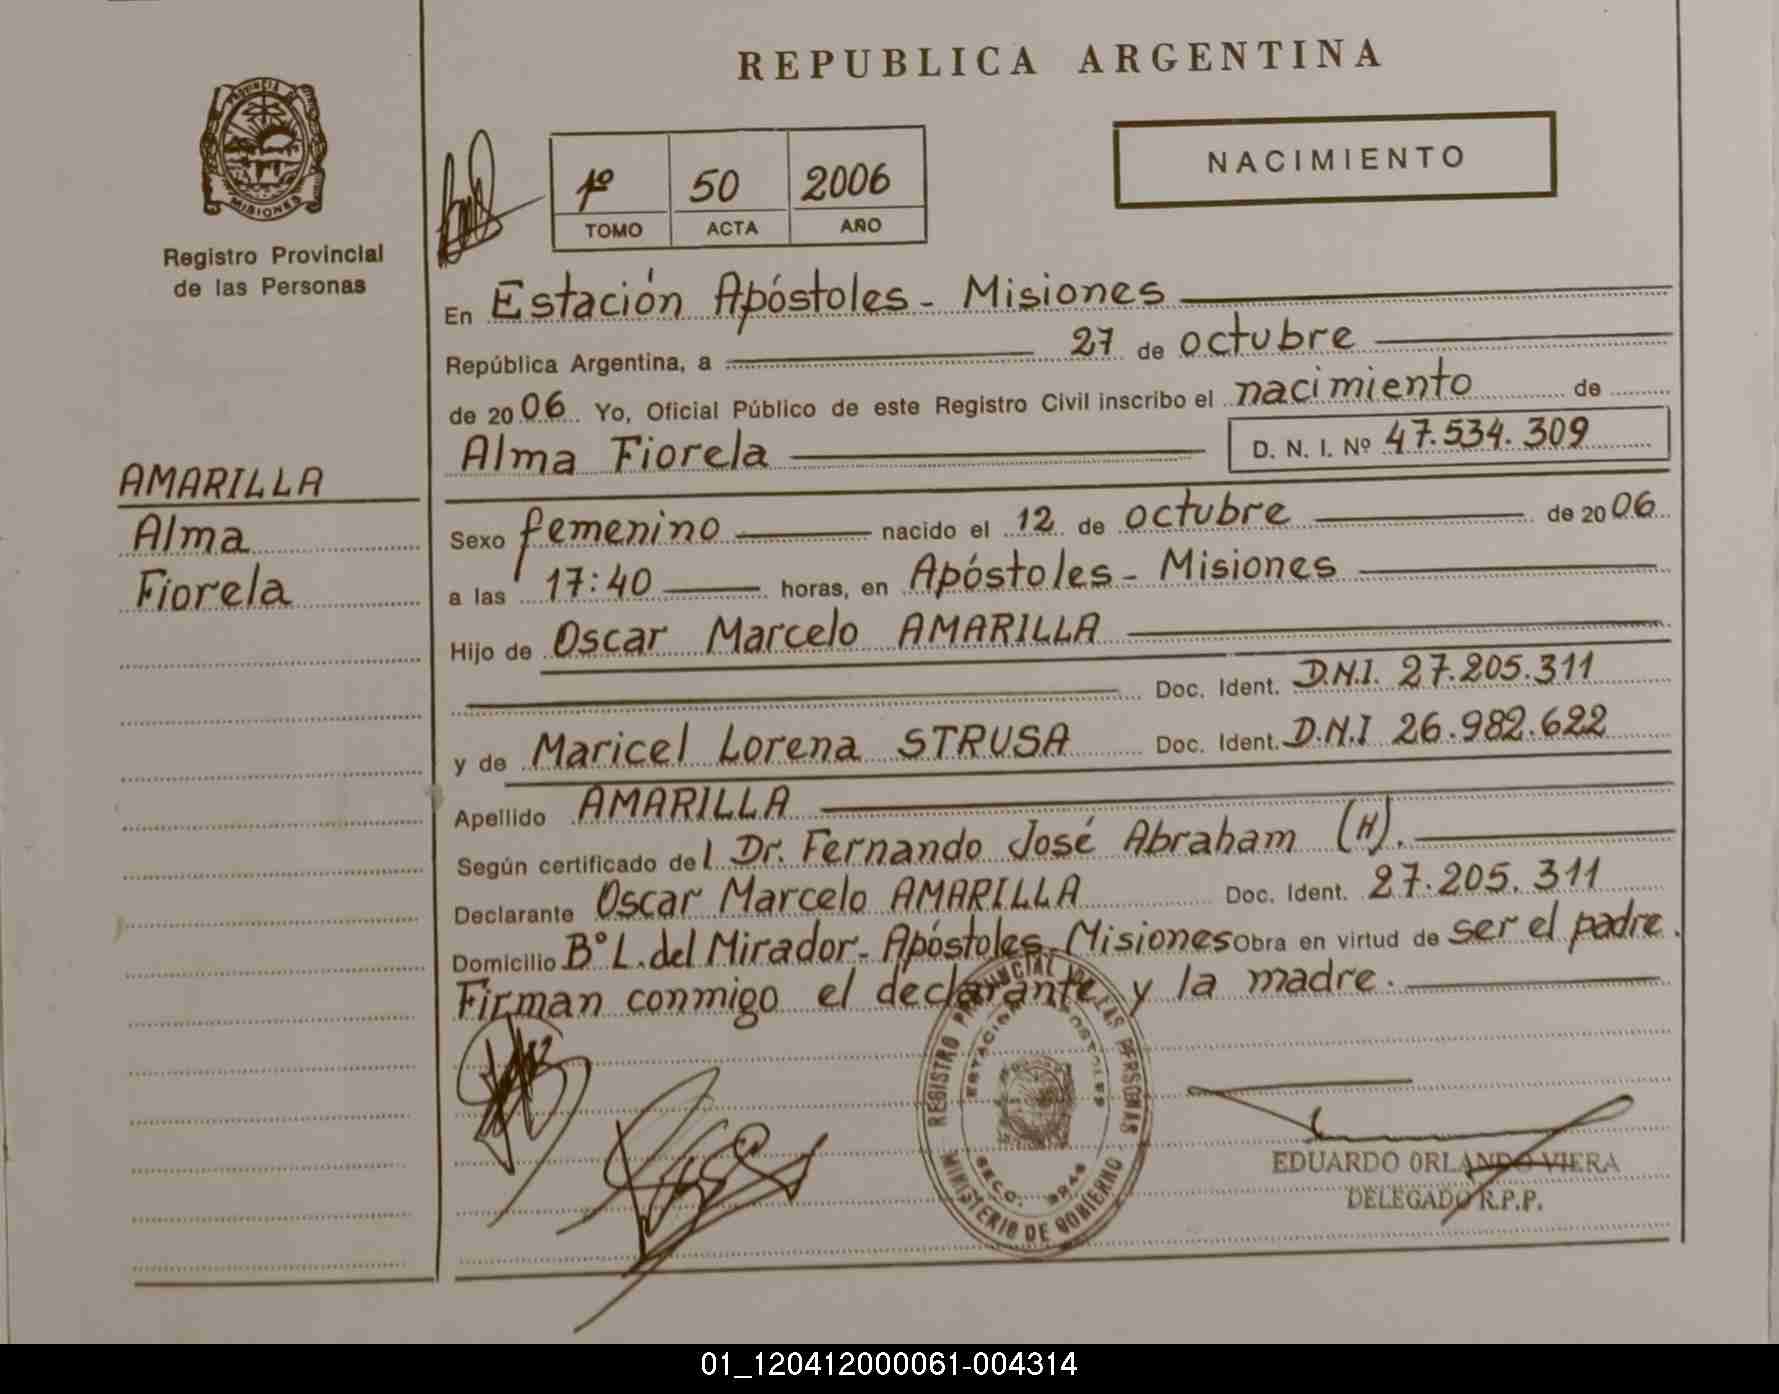 REPUBLICA ARGENTINA
PROVINCIA DE
MISIONES
Registro Provincial
de las Personas
NACIMIENTO
1º 50 2006
TOMO ACTA AÑO
En Estación Apóstoles - Misiones
República Argentina, a 27 de octubre
de 2006 Yo, Oficial Público de este Registro Civil inscribo el nacimiento de
Alma Fiorela D. N. I. Nº 47.534.309
AMARILLA
Alma
Fiorela
Sexo femenino nacido el 12 de octubre de 2006
a las 17:40 horas, en Apóstoles - Misiones
Hijo de Oscar Marcelo AMARILLA
Doc. Ident. D.N.I. 27.205.311
y de Maricel Lorena STRUSA Doc. Ident. D.N.I 26.982.622
Apellido AMARILLA
Según certificado del Dr. Fernando José Abraham (H).
Declarante Oscar Marcelo AMARILLA Doc. Ident. 27.205.311
Domicilio Bº L. del Mirador - Apóstoles - Misiones Obra en virtud de ser el padre.
Firman conmigo el declarante y la madre.
REGISTRO PROVINCIAL DE LAS PERSONAS
ESTACION APOSTOLES
SECC.
MINISTERIO DE GOBIERNO
EDUARDO ORLANDO VIERA
DELEGADO R.P.P.
01_120412000061-004314